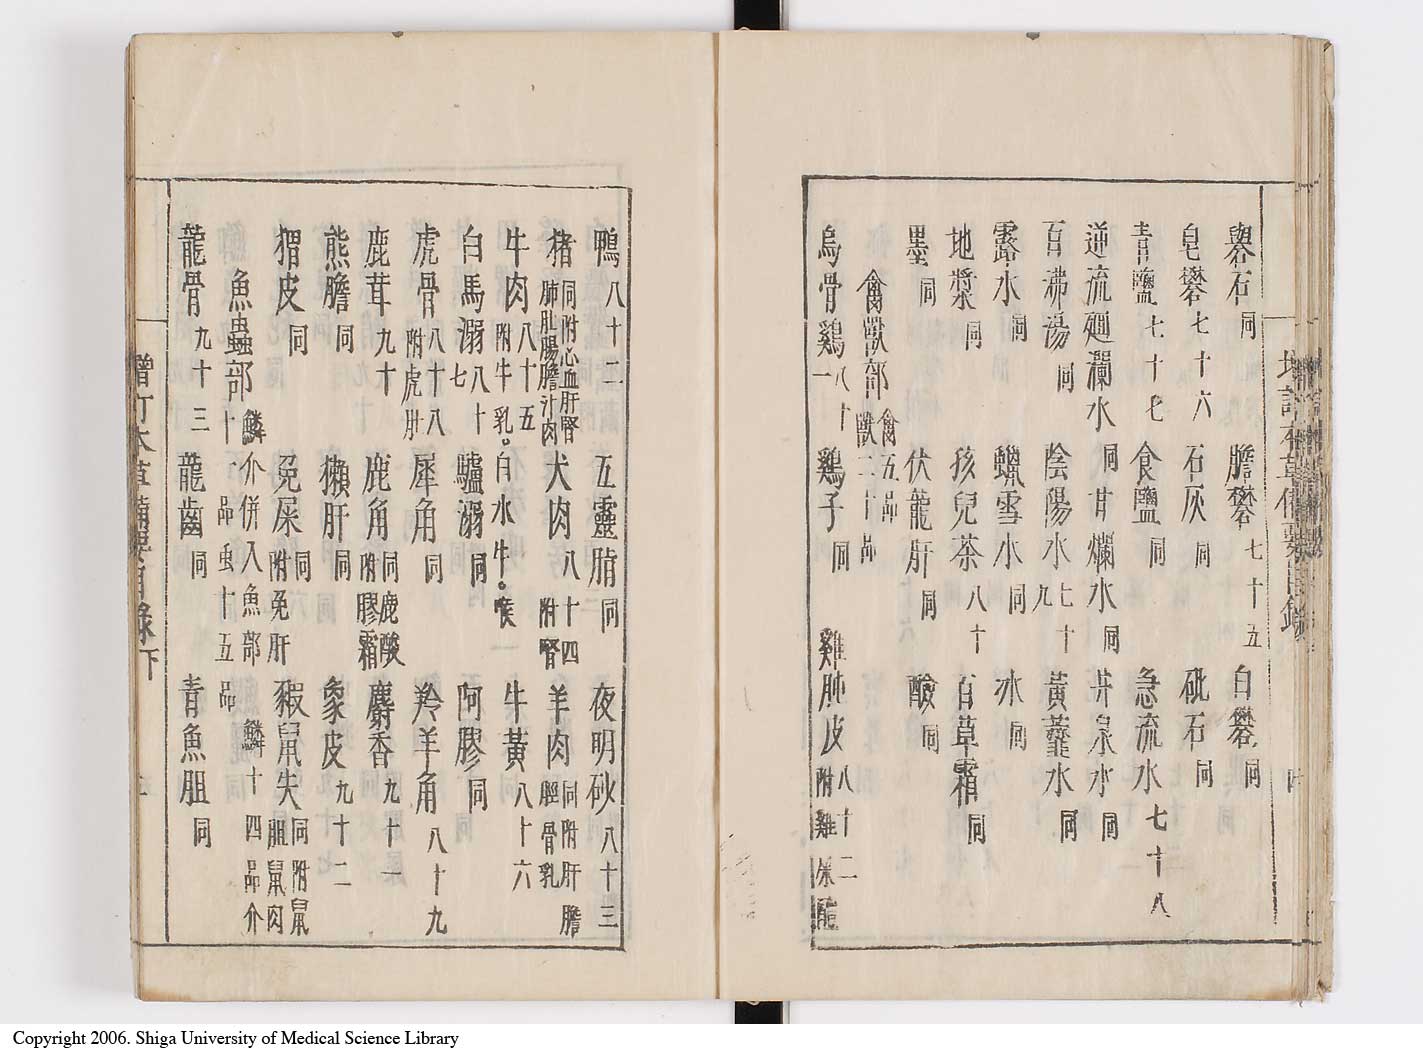 礜石同 膽礬七十五 白礬同
皂礬七十六 石灰同 砒石同
青鹽七十七 食鹽同 急流水七十八
逆流廻瀾水同 甘爛水同 井泉水同
百沸湯同 陰陽水七十九 黃虀水同
露水同 蠟雪水同 冰同
地漿同 孩兒茶八十 百草霜同
墨同 伏龍肝同 鹼同
禽獸部禽五品獸二十品
烏骨鷄八十一 鷄子同 雞肫皮八十二附雞屎醴
鴨八十二 五靈脂同 夜明砂八十三
猪肉同附心血肝腎肺肚腸膽汁 犬肉八十四附腎 羊肉同附肝膽脛骨乳
牛肉八十五附牛乳。白水牛。喉 牛黃八十六
白馬溺八十七 驢溺同 阿膠同
虎骨八十八附虎肚 犀角同 羚羊角八十九
鹿茸九十 鹿角同鹿醶附膠霜 麝香九十一
熊膽同 獺肝同 象皮九十二
猬皮同 兔屎同附兔肝 豭鼠矢同附鼠膽鼠肉
魚蟲部鱗介併入魚部鱗十四品介十一品虫十五品
龍骨九十三 龍齒同 青魚胆同
增訂本草備要目錄下